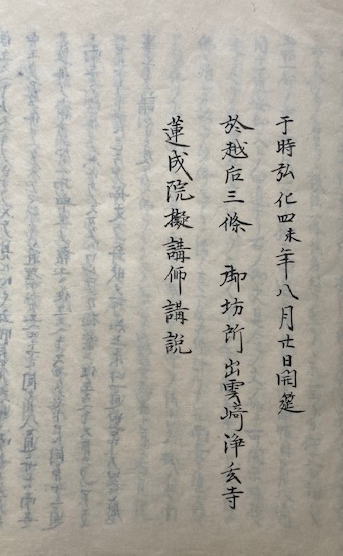 于時弘化四未年八月廿日開筵
於越后三條 御坊所出雲﨑浄玄寺
蓮成院擬講師講説